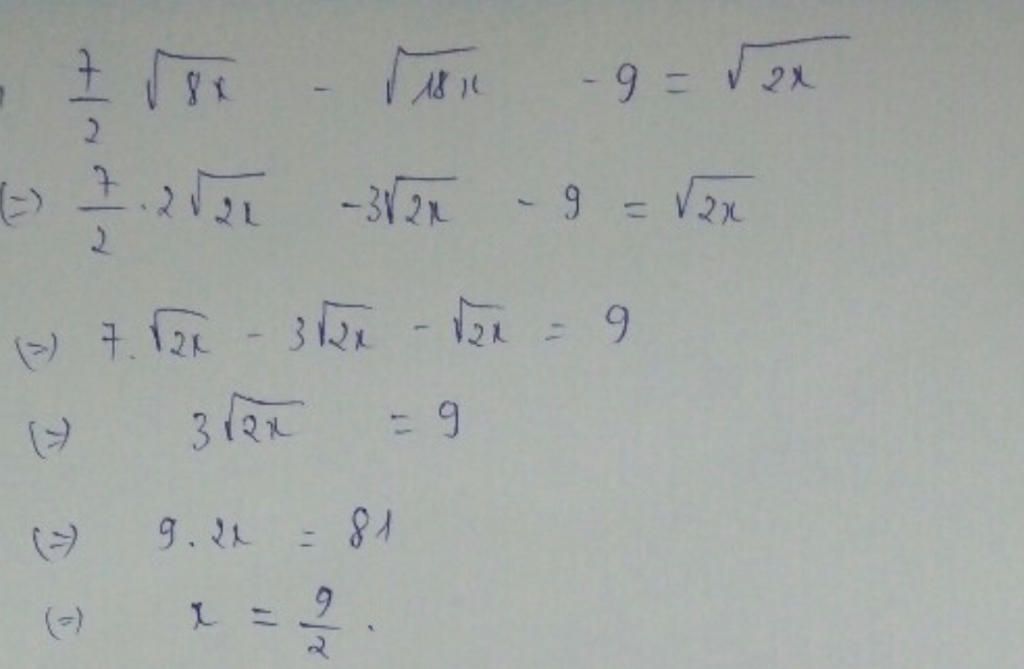 7/2 √8x - √18x - 9 = √2x
(=) 7/2 . 2√2x - 3√2x - 9 = √2x
(=) 7. √2x - 3√2x - √2x = 9
(=) 3√2x = 9
(=) 9. 2x = 81
(=) x = 9/2 .